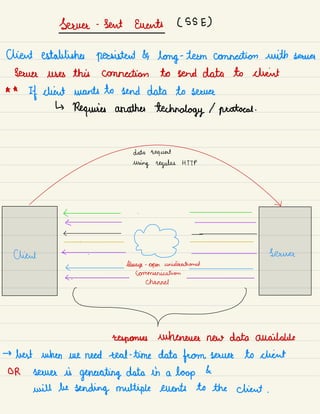 Server - Sent Events (SSE)
Client establishes persisted & long-term connection with server
Server uses this connection to send data to client
** If client wants to send data to server
↳ Requires another technology / protocol.
data request
using regular HTTP
Client
Server
Always-open unidirectional
Communication
Channel
responses whenever new data available
→ best when we need real-time data from server to client
OR server is generating data in a loop &
will be sending multiple events to the client.